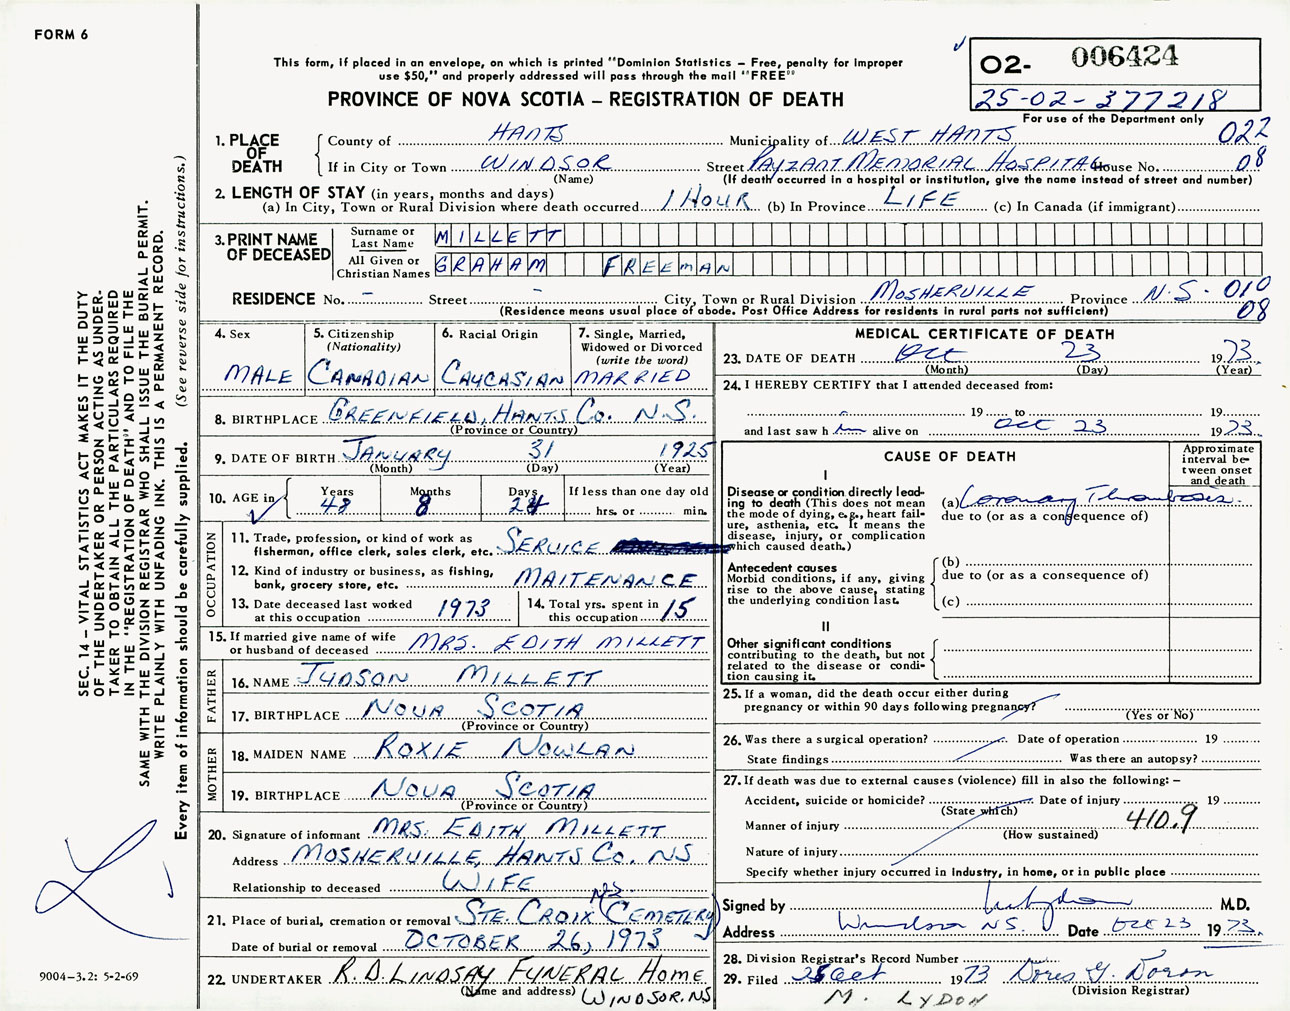 FORM 6
This form, if placed in an envelope, on which is printed "Dominion Statistics – Free, penalty for improper
use $50," and properly addressed will pass through the mail "FREE"
PROVINCE OF NOVA SCOTIA – REGISTRATION OF DEATH
02- 006424
25-02-377218
For use of the Department only
022
08
1. PLACE OF DEATH
County of HANTS Municipality of WEST HANTS
If in City or Town WINDSOR Street PAYZANT MEMORIAL HOSPITAL House No.
(Name) (If death occurred in a hospital or institution, give the name instead of street and number)
2. LENGTH OF STAY (in years, months and days)
(a) In City, Town or Rural Division where death occurred 1 HOUR (b) In Province LIFE (c) In Canada (if immigrant)
3. PRINT NAME OF DECEASED
Surname or Last Name MILLETT
All Given or Christian Names GRAHAM FREEMAN
RESIDENCE No. – Street – City, Town or Rural Division MOSHERVILLE Province N.S. 010
(Residence means usual place of abode. Post Office Address for residents in rural parts not sufficient) 08
4. Sex MALE
5. Citizenship (Nationality) CANADIAN
6. Racial Origin CAUCASIAN
7. Single, Married, Widowed or Divorced (write the word) MARRIED
8. BIRTHPLACE GREENFIELD, HANTS CO. N.S.
(Province or Country)
9. DATE OF BIRTH JANUARY 31 1925
(Month) (Day) (Year)
10. AGE in Years 48 Months 8 Days If less than one day old hrs. or min.
OCCUPATION
11. Trade, profession, or kind of work as fisherman, office clerk, sales clerk, etc. SERVICE
12. Kind of industry or business, as fishing, bank, grocery store, etc. MAITENANCE
13. Date deceased last worked at this occupation 1973
14. Total yrs. spent in this occupation 15
15. If married give name of wife or husband of deceased MRS. EDITH MILLETT
FATHER
16. NAME JUDSON MILLETT
17. BIRTHPLACE NOVA SCOTIA
(Province or Country)
MOTHER
18. MAIDEN NAME ROXIE NOWLAN
19. BIRTHPLACE NOVA SCOTIA
(Province or Country)
20. Signature of informant MRS. EDITH MILLETT
Address MOSHERVILLE, HANTS CO. NS
Relationship to deceased WIFE
21. Place of burial, cremation or removal STE. CROIX CEMETERY NS
Date of burial or removal OCTOBER 26, 1973
22. UNDERTAKER R.D. LINDSAY FUNERAL HOME
(Name and address) WINDSOR. NS
MEDICAL CERTIFICATE OF DEATH
23. DATE OF DEATH Oct 23 1973.
(Month) (Day) (Year)
24. I HEREBY CERTIFY that I attended deceased from:
19 to 19
and last saw h im alive on Oct 23 1973.
CAUSE OF DEATH
Approximate interval between onset and death
I
Disease or condition directly leading to death (This does not
mean the mode of dying, e.g., heart failure, asthenia, etc. It means the
disease, injury, or complication which caused death.)
(a) Coronary Thrombosis.
due to (or as a consequence of)
Antecedent causes
Morbid conditions, if any, giving rise to the above cause, stating
the underlying condition last.
(b)
due to (or as a consequence of)
(c)
II
Other significant conditions
contributing to the death, but not related to the disease or condition causing it.
25. If a woman, did the death occur either during
pregnancy or within 90 days following pregnancy?
(Yes or No)
26. Was there a surgical operation? Date of operation 19
State findings Was there an autopsy?
27. If death was due to external causes (violence) fill in also the following: –
Accident, suicide or homicide? Date of injury 19
(State which)
Manner of injury 410.9
(How sustained)
Nature of injury
Specify whether injury occurred in Industry, in home, or in public place
Signed by M.D.
Address Windsor N.S. Date Oct 23 1973.
28. Division Registrar's Record Number
29. Filed 25 Oct 1973 Doris G. Doran
(Division Registrar)
M. LYDON
SEC. 14 – VITAL STATISTICS ACT MAKES IT THE DUTY
OF THE UNDERTAKER OR PERSON ACTING AS UNDER-
TAKER TO OBTAIN ALL THE PARTICULARS REQUIRED
IN THE "REGISTRATION OF DEATH" AND TO FILE THE
SAME WITH THE DIVISION REGISTRAR WHO SHALL ISSUE THE BURIAL PERMIT.
WRITE PLAINLY WITH UNFADING INK. THIS IS A PERMANENT RECORD.
Every item of information should be carefully supplied. (See reverse side for instructions.)
9004-3.2: 5-2-69